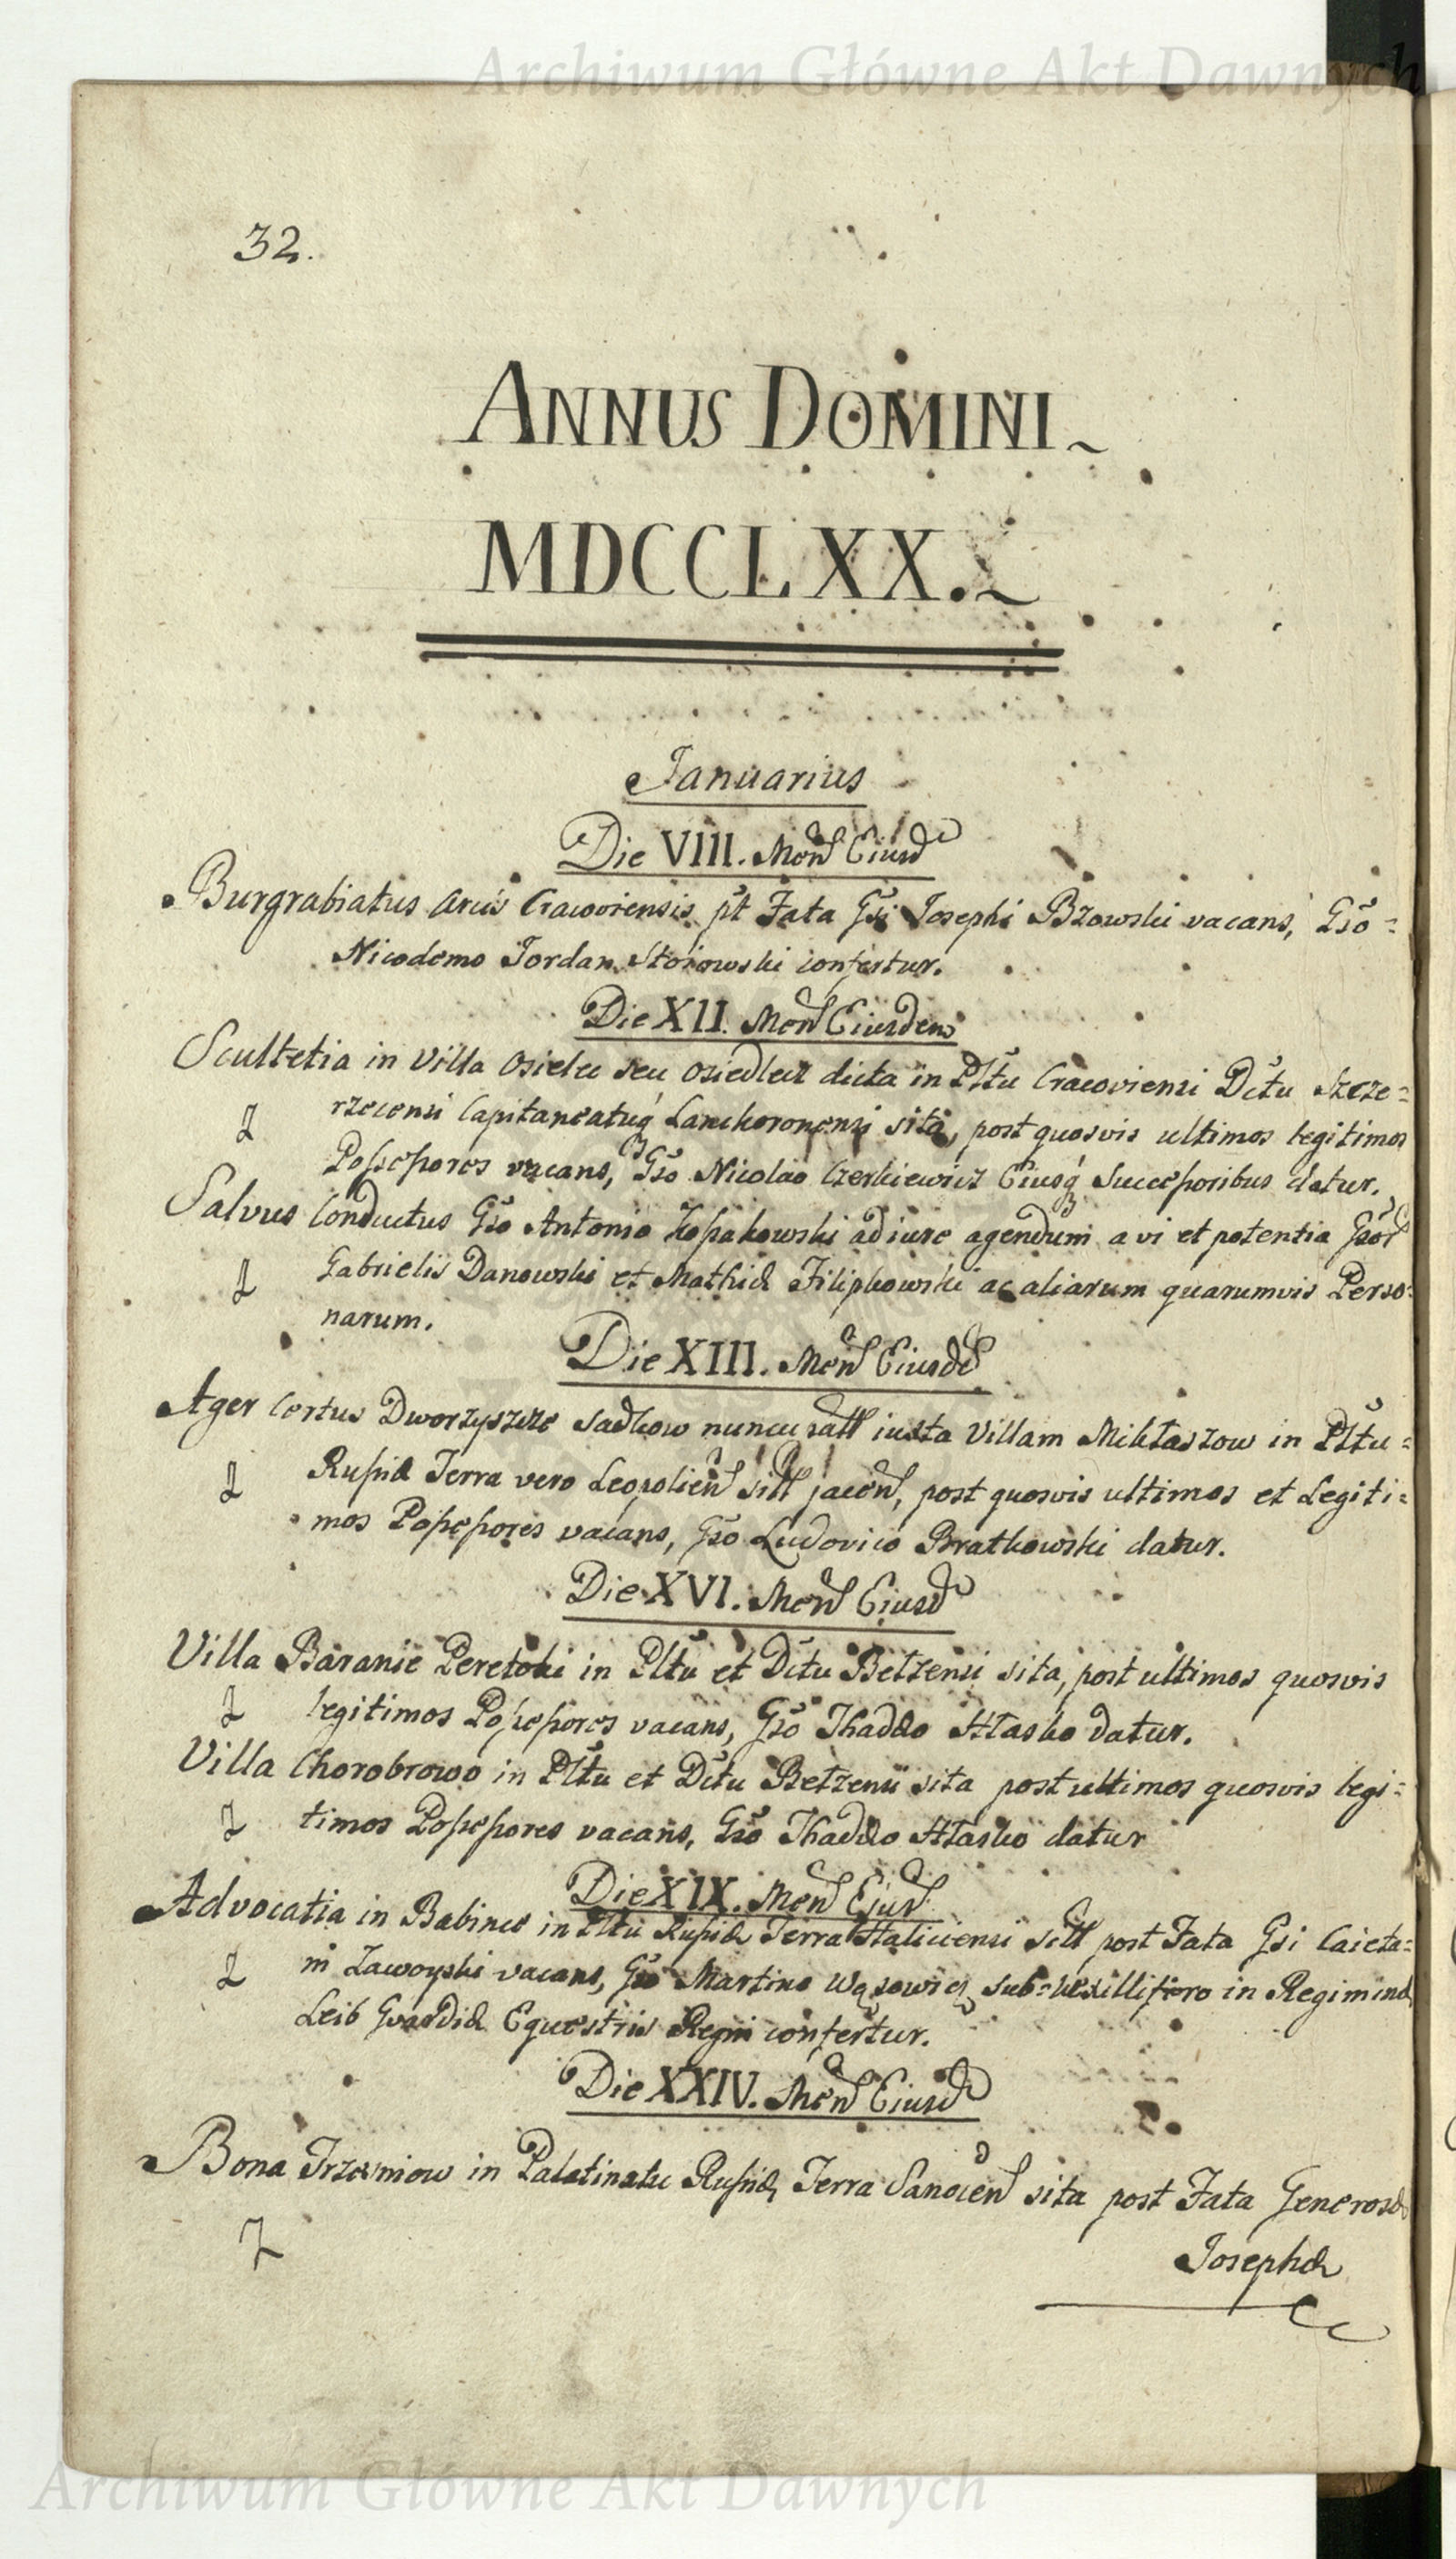 Archiwum Główne Akt Dawnych
32.
ANNUS DOMINI
MDCCLXX.
Januarius
Die VIII. Mens Eiusd
Burgrabiatus Arcis Cracoviensis pt Fata Gsi Josephi Bzowski vacans, Gso=
Nicodemo Jordan Stoiowski confertur.
Die XII. Mens Eiusdem
Scultetia in Villa Osielec seu Osiedlecz dicta in Pltu Cracoviensi Dctu Szcze=
rzecensi Capitaneatuq Lanckoronensi sita, post quosvis ultimos legitimos
Possessores vacans, Gso Nicolao Czerkiewicz Eiusq Successoribus datur.
Salvus Conductus Gso Antonio Kossakowski ad iure agendum a vi et potentia Gsor
Gabrielis Danowski et Mathiæ Filipkowski ac aliarum quarumvis Perso=
narum.
Die XIII. Mens Eiusde
Ager Certus Dworzyszcze Sadkow nuncupatt iuxta Villam Mikłaszow in Pltu=
Russiæ Terra vero Leopolien sitt jacen, post quosvis ultimos et Legiti=
mos Possessores vacans, Gso Ludovico Bratkowski datur.
Die XVI. Mens Eiusd
Villa Baranie Peretoki in Pltu et Dctu Bełzensi sita, post ultimos quosvis
legitimos Possessores vacans, Gso Thaddæo Hłasko datur.
Villa Chorobrowo in Pltu et Dctu Bełzensi sita post ultimos quosvis legi=
timos Possessores vacans, Gso Thaddæo Hłasko datur
Die XIX. Mens Ejusd
Advocatia in Babince in Pltu Russiæ Terra Haliciensi sitt post Fata Gsi Caieta=
ni Zawoyski vacans, Gso Martino Wąsowicz Sub=vexillifero in Regimine
Leib Gvardiæ Equestris Regni confertur.
Die XXIV. Mens Eiusd
Bona Trzesniow in Palatinatu Russiæ, Terra Sanocen sita post Fata Generosæ
Josephæ
Archiwum Główne Akt Dawnych